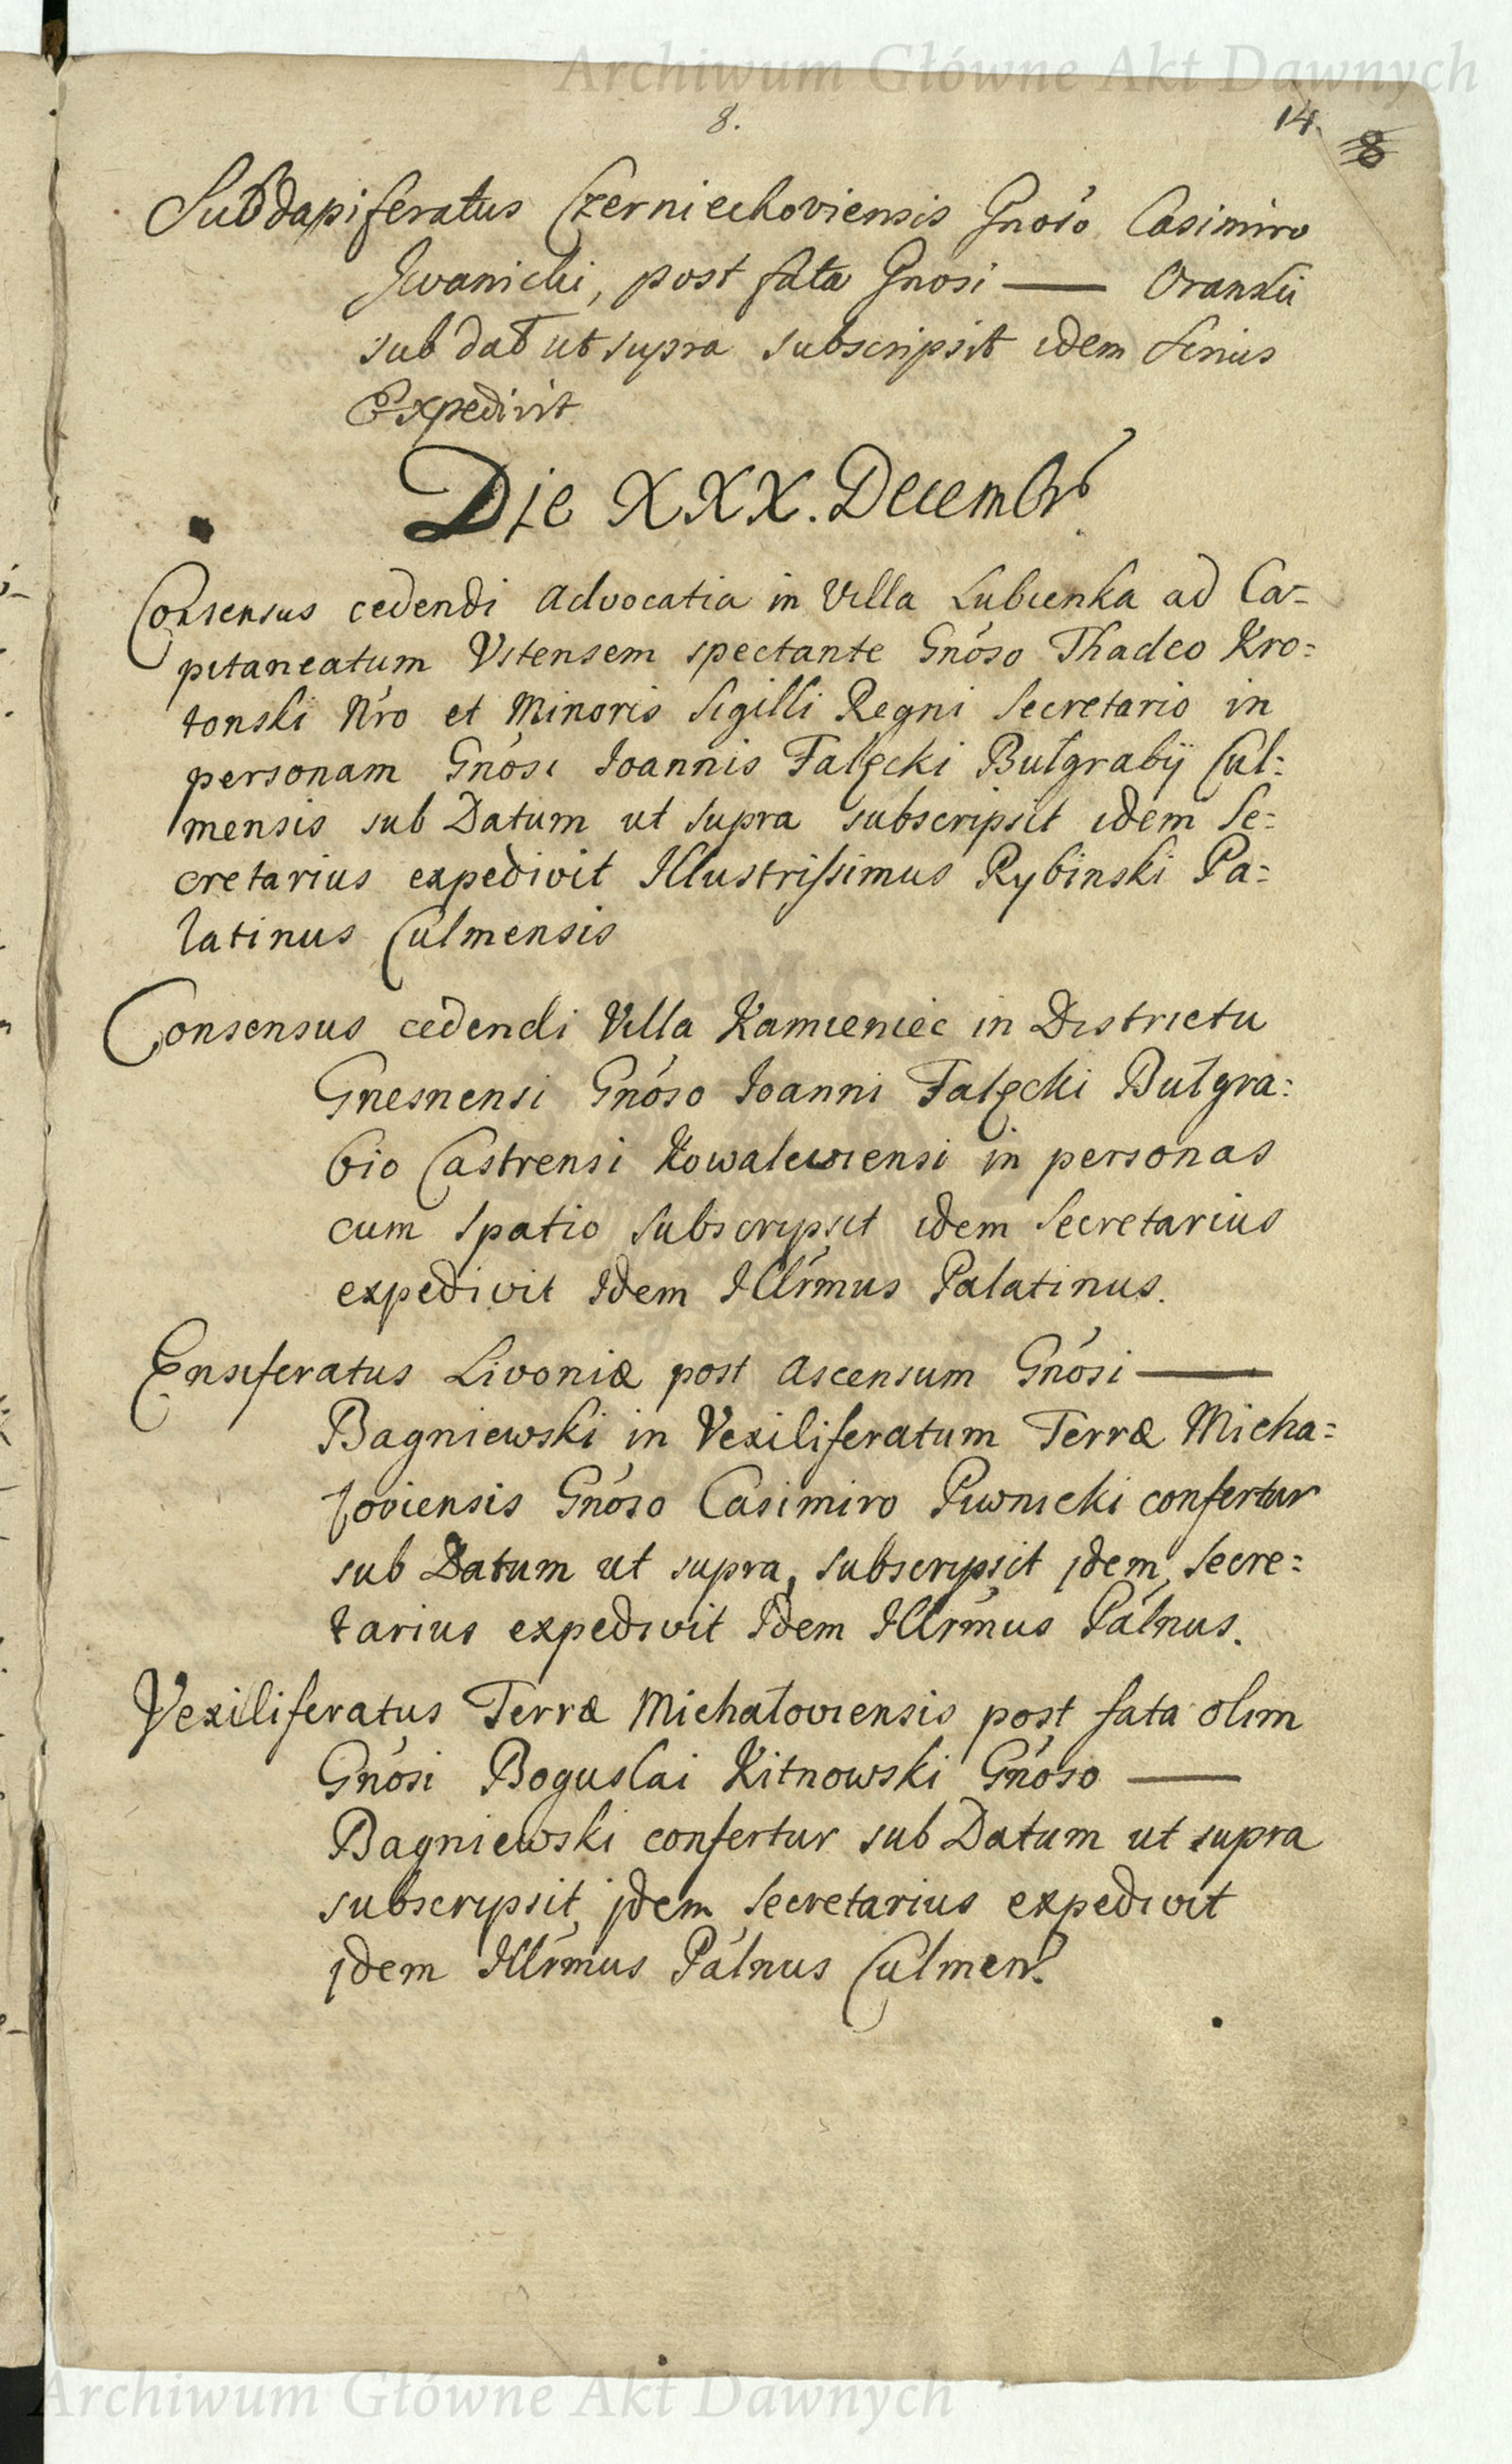 Archiwum Główne Akt Dawnych
8.
14. 8
Subdapiferatus Czerniechoviensis Gnoso Casimiro
Jwanicki, post fata Gnosi — Oranskii
sub dat ut supra subscripsit idem
Expedivit
Die XXX. Decembr
Consensus cedendi Advocatia in Villa Lubienka ad Ca=
pitaneatum Ustensem spectante Gnóso Thadeo Kro=
tonski Nro et Minoris Sigilli Regni Secretario in
personam Gnósi Joannis Falęcki Butgrabÿ Cul=
mensis sub Datum ut supra subscripsit idem Se=
cretarius expedivit Illustrissimus Rybinski Pa=
latinus Culmensis
Consensus cedendi Villa Kamieniec in Districtu
Gnesnensi Gnóso Joanni Falęcki Butgra=
bio Castrensi Kowalewiensi in personas
cum spatio subscripsit idem Secretarius
expedivit Idem Illrmus Palatinus.
Ensiferatus Livoniæ post ascensum Gnósi —
Bagniewski in Vexiliferatum Terræ Micha=
loviensis Gnóso Casimiro Piwnicki confertur
sub Datum ut supra, subscripsit jdem Secre=
tarius expedivit Idem Illrmus Pálnus.
Vexiliferatus Terræ Michałoviensis post fata olim
Gnósi Boguslai Kitnowski Gnóso —
Bagniewski confertur sub Datum ut supra
subscripsit jdem Secretarius expedivit
jdem Illrmus Pálnus Culmen.
Archiwum Główne Akt Dawnych